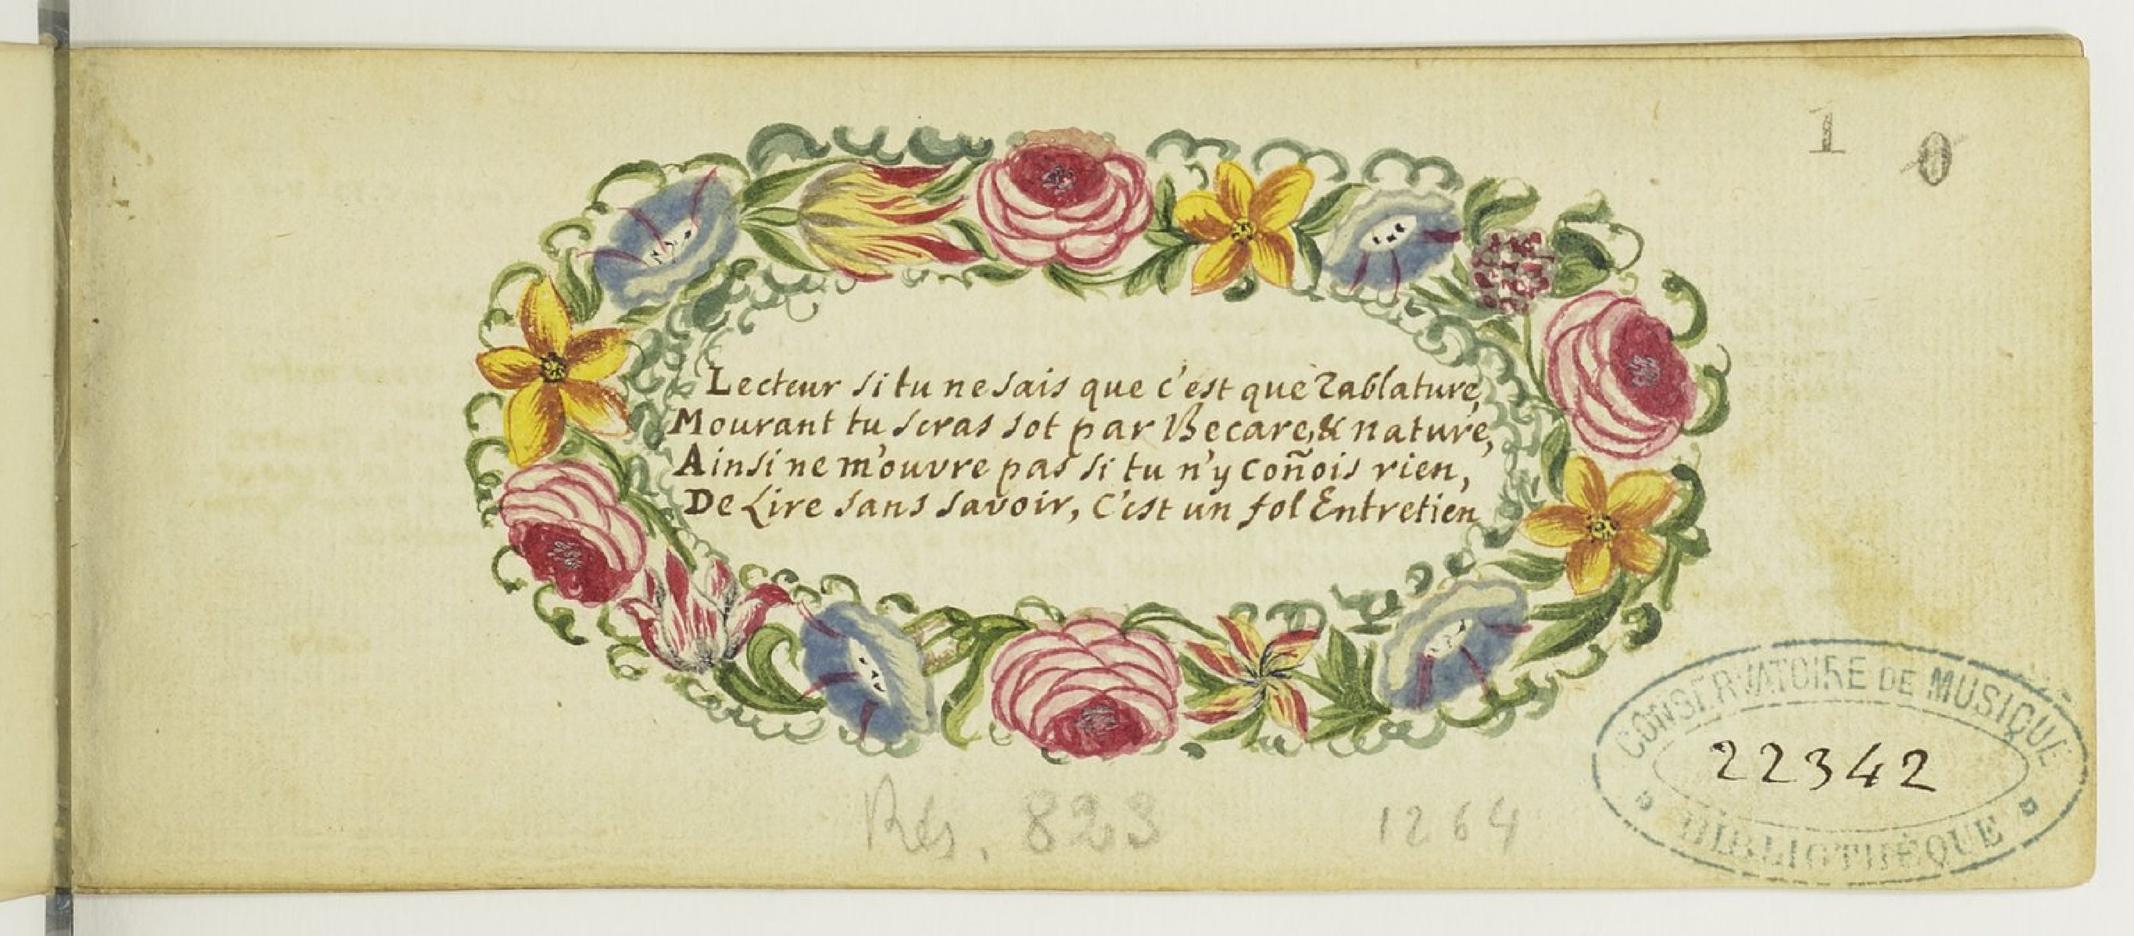 1 0
Lecteur si tu ne sais que c'est que Tablature,
Mourant tu seras sot par Becare, & nature,
Ainsi ne m'ouvre pas si tu n'y coñois rien,
De Lire sans savoir, C'est un fol Entretien
Rés. 823 1264
CONSERVATOIRE DE MUSIQUE
22342
BIBLIOTHÈQUE